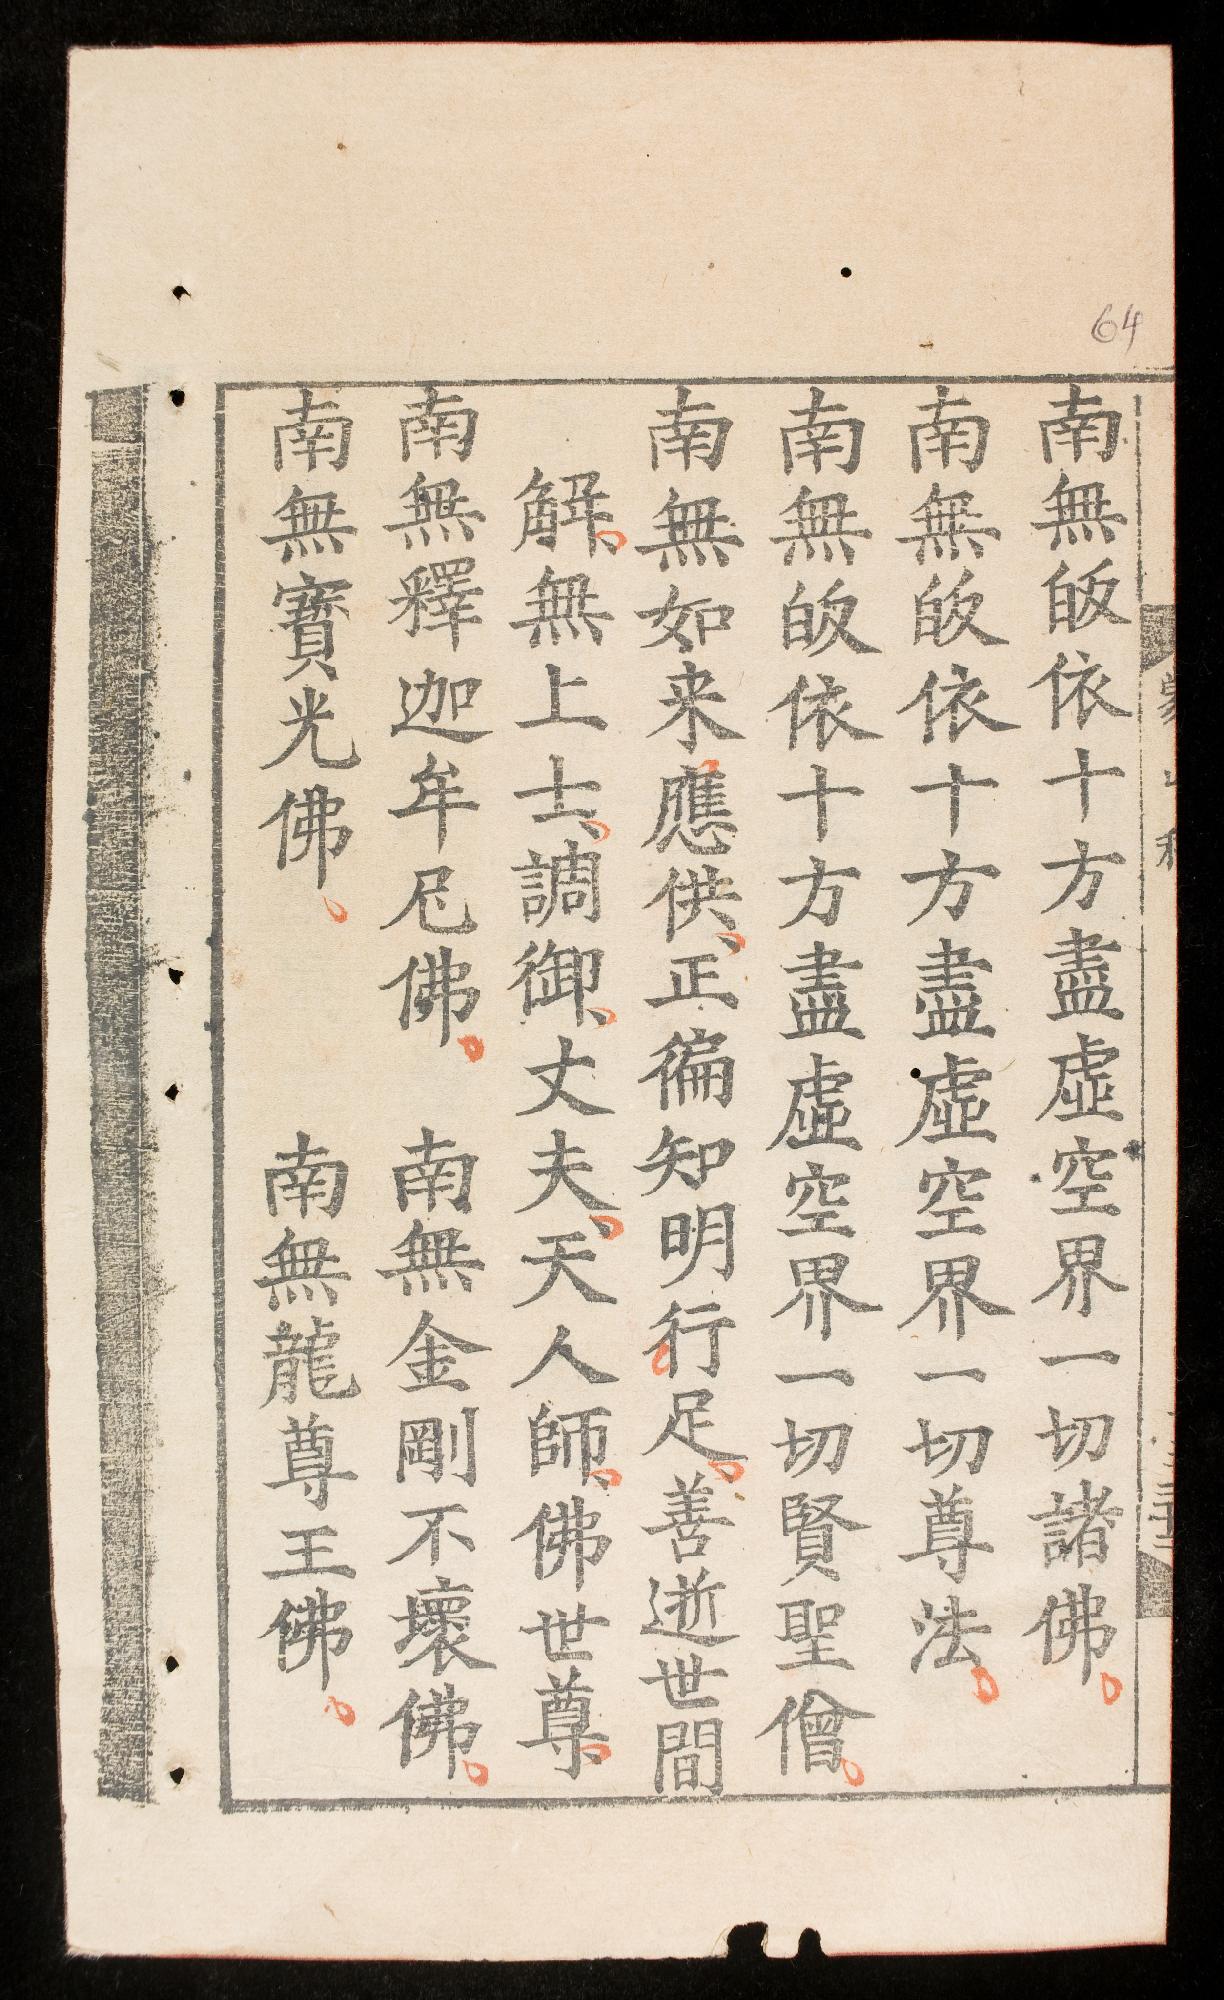 64
南無皈依十方盡虛空界一切諸佛
南無皈依十方盡虛空界一切尊法
南無皈依十方盡虛空界一切賢聖僧
南無如来應供正徧知明行足善逝世間
解無上士調御丈夫天人師佛世尊
南無釋迦牟尼佛　南無金剛不壞佛
南無寶光佛　南無龍尊王佛